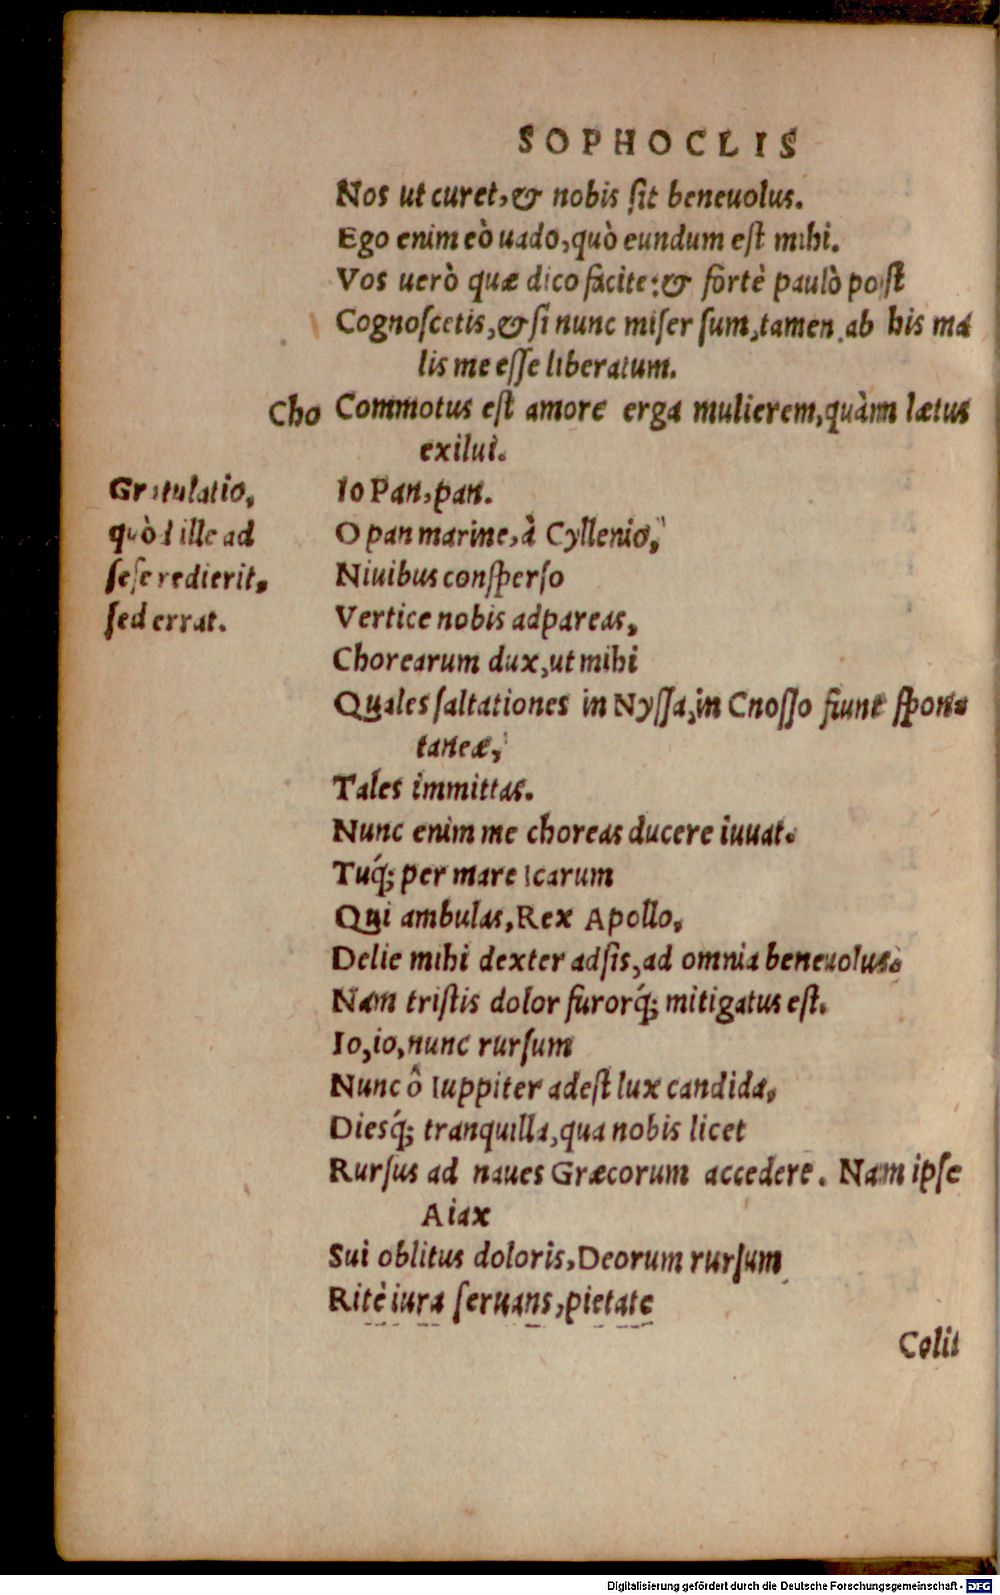 SOPHOCLIS
Nos ut curet, & nobis ſit beneuolus.
Ego enim eò uado, quò eundum eſt mihi.
Vos uerò quæ dico facite: & fortè paulò poſt
Cognoſcetis, & ſi nunc miſer ſum, tamen ab his ma
lis me eſſe liberatum.
Cho Commotus eſt amore erga mulierem, quàm lætus
exilui.
Io Pan, pan.
O pan marine, à Cyllenio,
Niuibus conſperſo
Vertice nobis adpareas,
Chorearum dux, ut mihi
Quales ſaltationes in Nyſſa, in Cnoſſo fiunt ſpon
taneæ,
Tales immittas.
Nunc enim me choreas ducere iuuat.
Tuq́; per mare Icarum
Qui ambulas, Rex Apollo,
Delie mihi dexter adſis, ad omnia beneuolus.
Nam triſtis dolor furorq́; mitigatus eſt.
Io, io, nunc rurſum
Nunc ô Iuppiter adeſt lux candida,
Diesq́; tranquilla, qua nobis licet
Rurſus ad naues Græcorum accedere. Nam ipſe
Aiax
Sui oblitus doloris, Deorum rurſum
Ritè iura ſeruans, pietate
Colit
Gratulatio,
quòd ille ad
ſeſe redierit,
ſed errat.
Digitalisierung gefördert durch die Deutsche Forschungsgemeinschaft - DFG